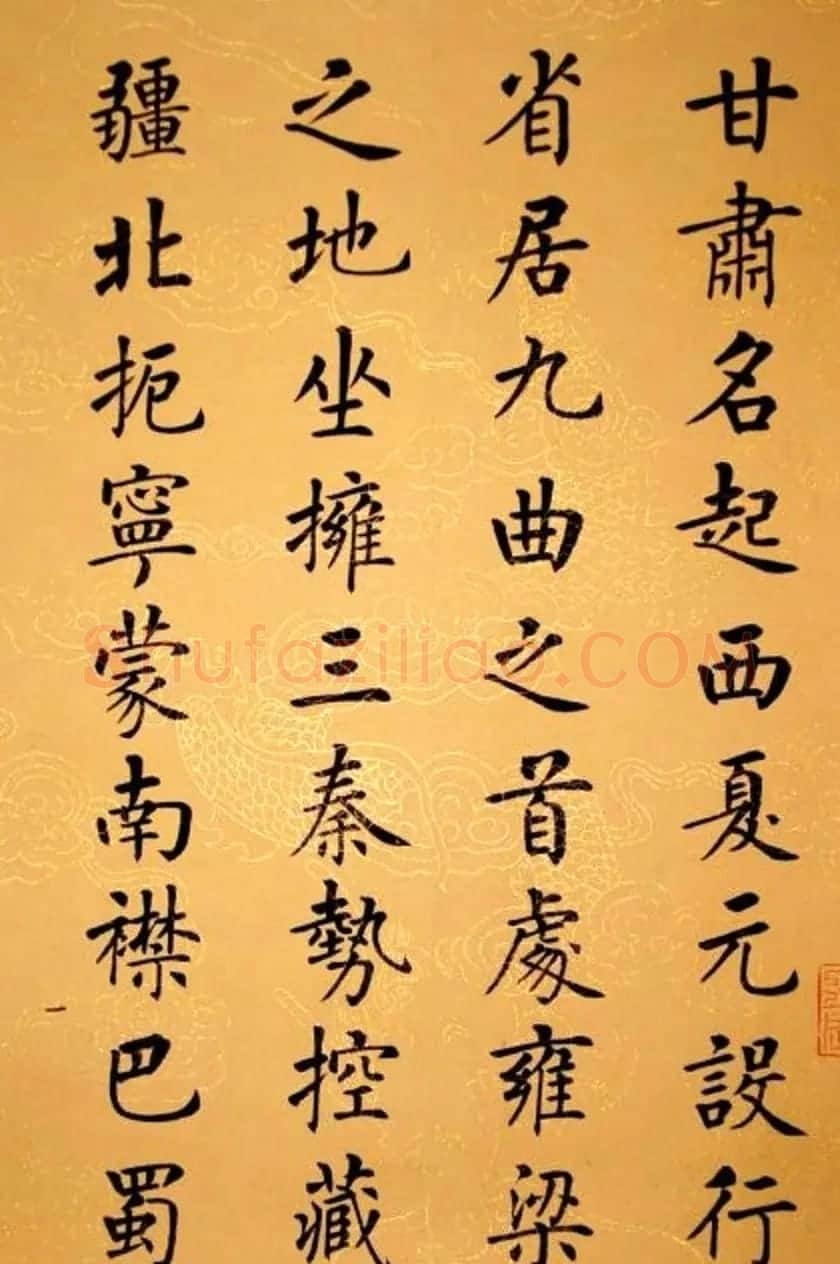 甘肅名起西夏元設行
省居九曲之首處雍梁
之地坐擁三秦勢控藏
疆北扼寧蒙南襟巴蜀
Shufaziliao.COM